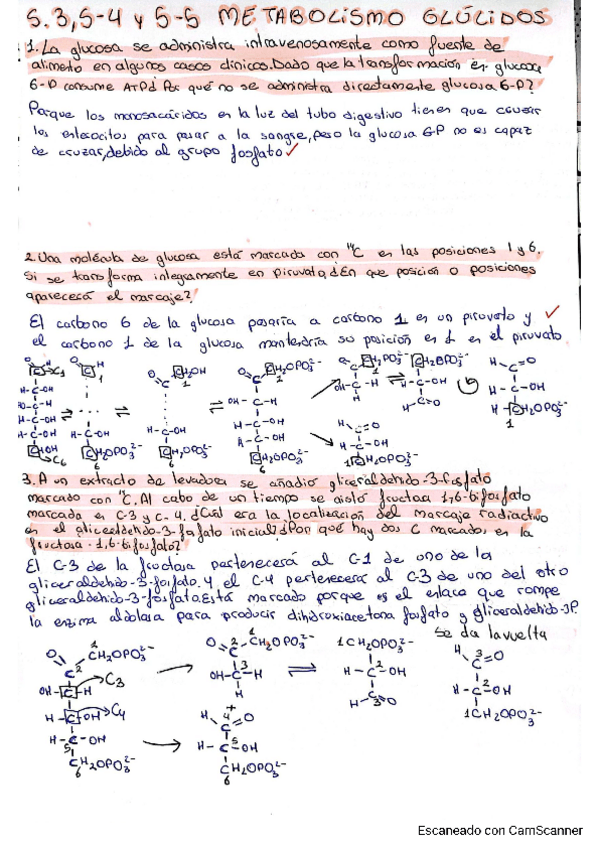 5.3, 5-4 y 5-5 METABOLISMO GLÚCIDOS
1. La glucosa se administra intravenosamente como fuente de
alimento en algunos casos clínicos. Dado que la transformación en glucosa
6-P consume ATP ¿Por qué no se administra directamente glucosa 6-P?
Porque los monosacáridos en la luz del tubo digestivo tienen que cruzar
los enterocitos para pasar a la sangre, pero la glucosa 6-P no es capaz
de cruzar, debido al grupo fosfato ✓
2. Una molécula de glucosa está marcada con ¹⁴C en las posiciones 1 y 6.
Si se transforma integramente en piruvato, ¿En que posición o posiciones
aparecerá el marcaje?
El carbono 6 de la glucosa pasaría a carbono 1 en un piruvato y ✓
el carbono 1 de la glucosa mantendría su posición en 1 en el piruvato
3. A un extracto de levaduras se añadió gliceraldehído-3-fosfato
marcado con ¹⁴C. Al cabo de un tiempo se aisló fructosa 1,6-bifosfato
marcada en C-3 y C-4. ¿Cuál era la localización del marcaje radiactivo
en el gliceraldehído-3-fosfato inicial? ¿Por qué hay dos C marcados en la
fructosa-1,6-bifosfato?
El C-3 de la fructosa pertenecerá al C-1 de uno de la
gliceraldehido-3-fosfato. Y el C-4 pertenecerá al C-3 de uno del otro
gliceraldehido-3-fosfato. Está marcado porque es el enlace que rompe
la enzima aldolasa para producir dihidroxiacetona fosfato y gliceraldehido-3P.
se da la vuelta
C3
C4
Escaneado con CamScanner